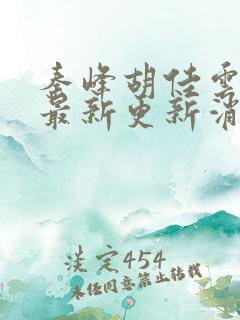 秦峰胡佳雲
最新更新消
淡定454
未经同意禁止转载